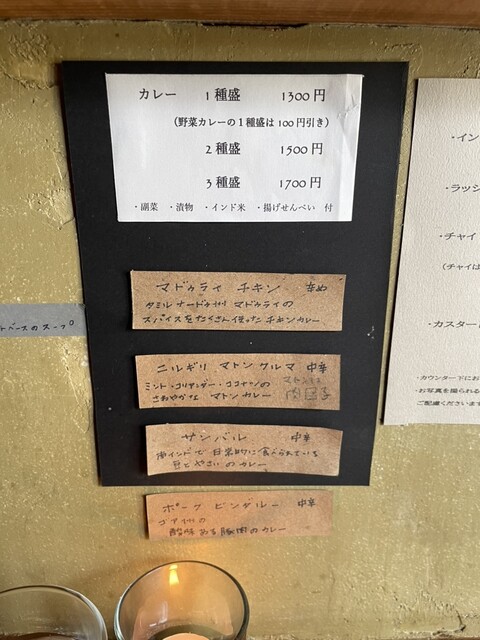 カレー 1種盛 1300円
(野菜カレーの1種盛は100円引き)
2種盛 1500円
3種盛 1700円
・副菜 ・漬物 ・インド米 ・揚げせんべい 付
マドゥライ チキン 辛め
タミルナードゥ州 マドゥライの
スパイスをたくさん使ったチキンカレー
ニルギリ マトンクルマ 中辛
ミント・コリアンダー・ココナッツの
さわやかな マトンカレー
サンバル 中辛
南インドで日常的に食べられている
豆とやさいのカレー
ポーク ビンダルー 中辛
ゴア州の
酸味ある豚肉のカレー
のスープ
・イン
・ラッシ
・チャイ
(チャイは
・カスター
・カウンター下にお
・お写真を撮られる
ご配慮くださいます